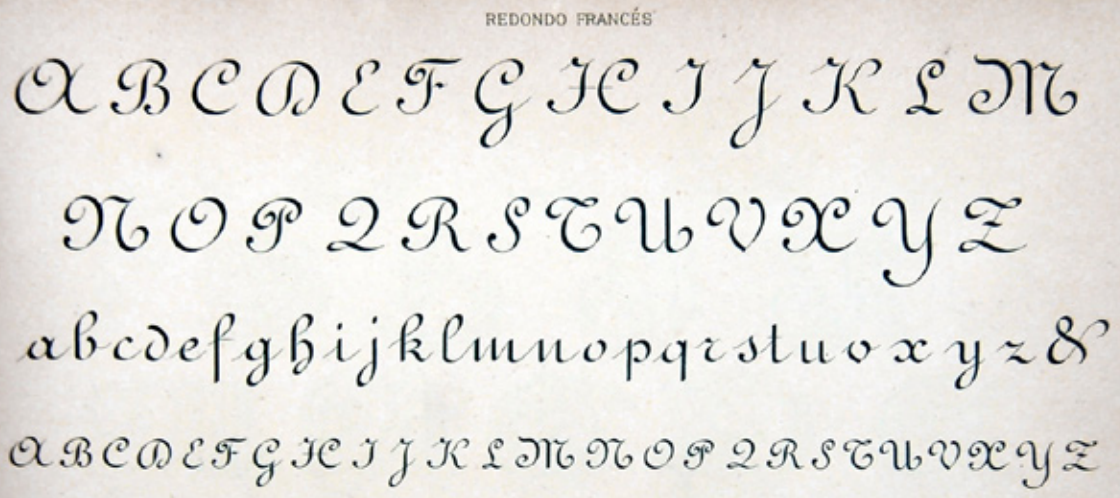 REDONDO FRANCÉS
A B C D E F G H I J K L M
N O P Q R S T U V X Y Z
a b c d e f g h i j k l m n o p q r s t u v x y z &
A B C D E F G H I J K L M N O P Q R S T U V X Y Z